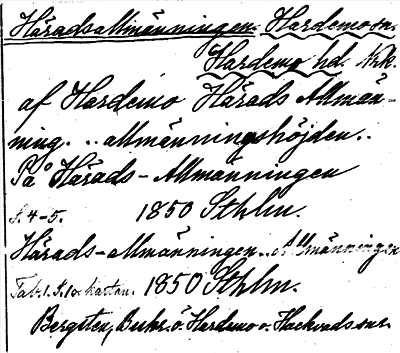 Häradsallmänningen. Hardemo sn.
Hardemo hd. Nrk.
af Hardemo Härads Allmän-
ning. .. allmänningshöjden..
På Härads-Allmänningen
S. 4-5. 1850 Sthlm.
Härads-allmänningen.. Allmänningen
Tab. 1. S. 10. kartan. 1850 Sthlm.
Bergsten, Beskr. ö. Hardemo o. Hackvads snr